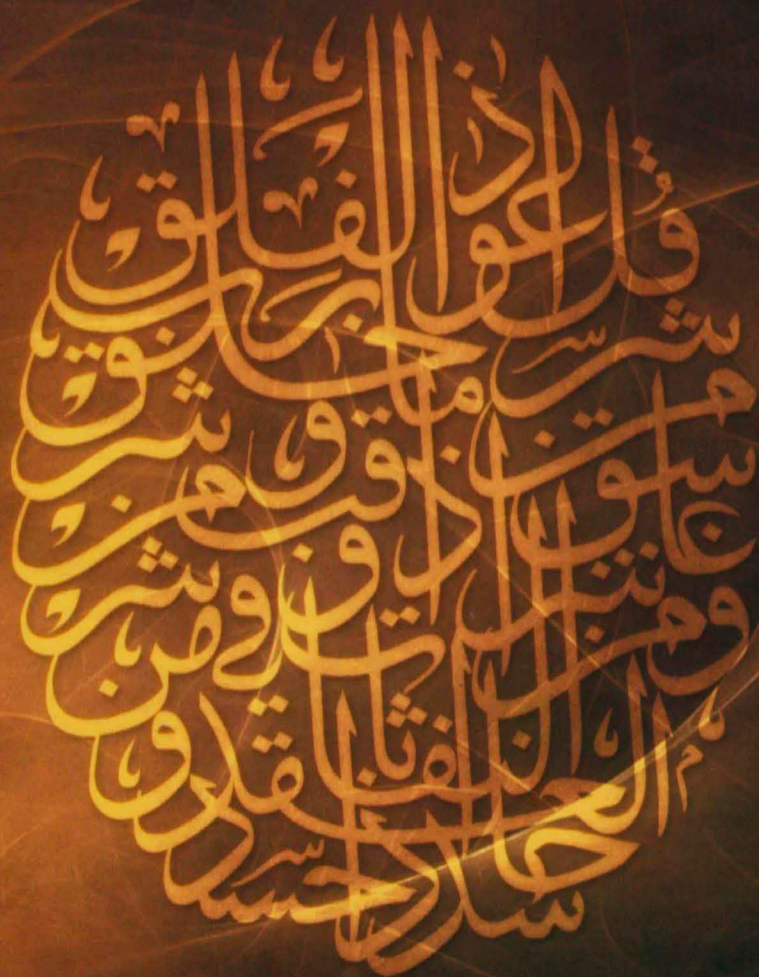 قل اعوذ برب الفلق
من شر ما خلق
و من شر غاسق اذا وقب
و من شر النفاثات في العقد
و من شر حاسد اذا حسد